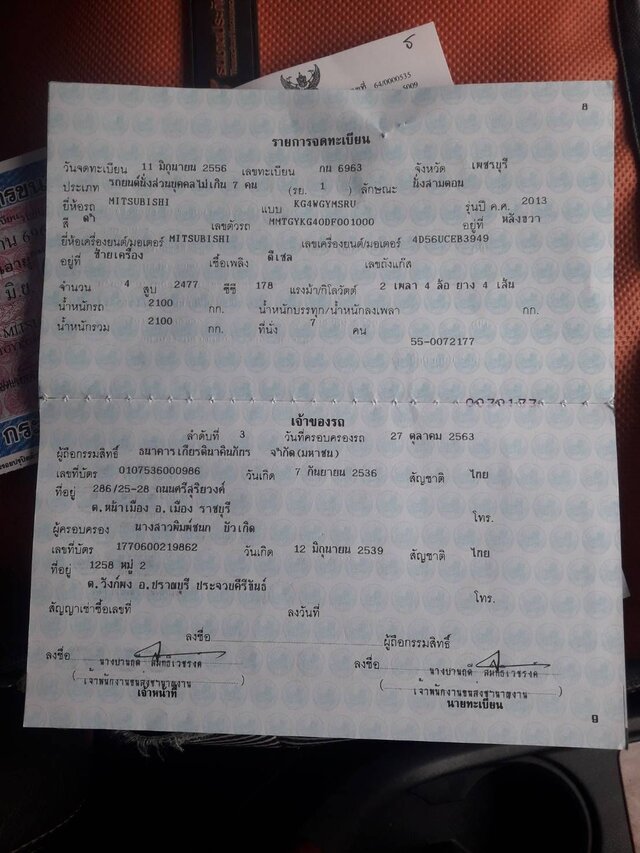 64/0000535
8
รายการจดทะเบียน
วันจดทะเบียน 11 มิถุนายน 2556 เลขทะเบียน กน 6963 จังหวัด เพชรบุรี
ประเภท รถยนต์นั่งส่วนบุคคลไม่เกิน 7 คน (รย. 1 ) ลักษณะ นั่งสามตอน
ยี่ห้อรถ MITSUBISHI แบบ KG4WGYMSRU รุ่นปี ค.ศ. 2013
สี ดำ เลขตัวรถ MMTGYKG40DF001000 อยู่ที่ หลังขวา
ยี่ห้อเครื่องยนต์/มอเตอร์ MITSUBISHI เลขเครื่องยนต์/มอเตอร์ 4D56UCEB3949
อยู่ที่ ซ้ายเครื่อง เชื้อเพลิง ดีเซล เลขถังแก๊ส
จำนวน 4 สูบ 2477 ซีซี 178 แรงม้า/กิโลวัตต์ 2 เพลา 4 ล้อ ยาง 4 เส้น
น้ำหนักรถ 2100 กก. น้ำหนักบรรทุก/น้ำหนักลงเพลา กก.
น้ำหนักรวม 2100 กก. ที่นั่ง 7 คน
55-0072177
เจ้าของรถ
ลำดับที่ 3 วันที่ครอบครองรถ 27 ตุลาคม 2563
ผู้ถือกรรมสิทธิ์ ธนาคารเกียรตินาคินภัทร จำกัด(มหาชน)
เลขที่บัตร 0107536000986 วันเกิด 7 กันยายน 2536 สัญชาติ ไทย
ที่อยู่ 286/25-28 ถนนศรีสุริยวงศ์
ต.หน้าเมือง อ.เมือง ราชบุรี โทร.
ผู้ครอบครอง นางสาวพิมพ์ชนก บัวเกิด
เลขที่บัตร 1770600219862 วันเกิด 12 มิถุนายน 2539 สัญชาติ ไทย
ที่อยู่ 1258 หมู่ 2
ต.วังก์พง อ.ปราณบุรี ประจวบคีรีขันธ์ โทร.
สัญญาเช่าซื้อเลขที่ ลงวันที่
ลงชื่อ ผู้ถือกรรมสิทธิ์
ลงชื่อ ลงชื่อ
( เจ้าพนักงานขนส่งชำนาญงาน ) ( เจ้าพนักงานขนส่งชำนาญงาน )
เจ้าหน้าที่ นายทะเบียน
9